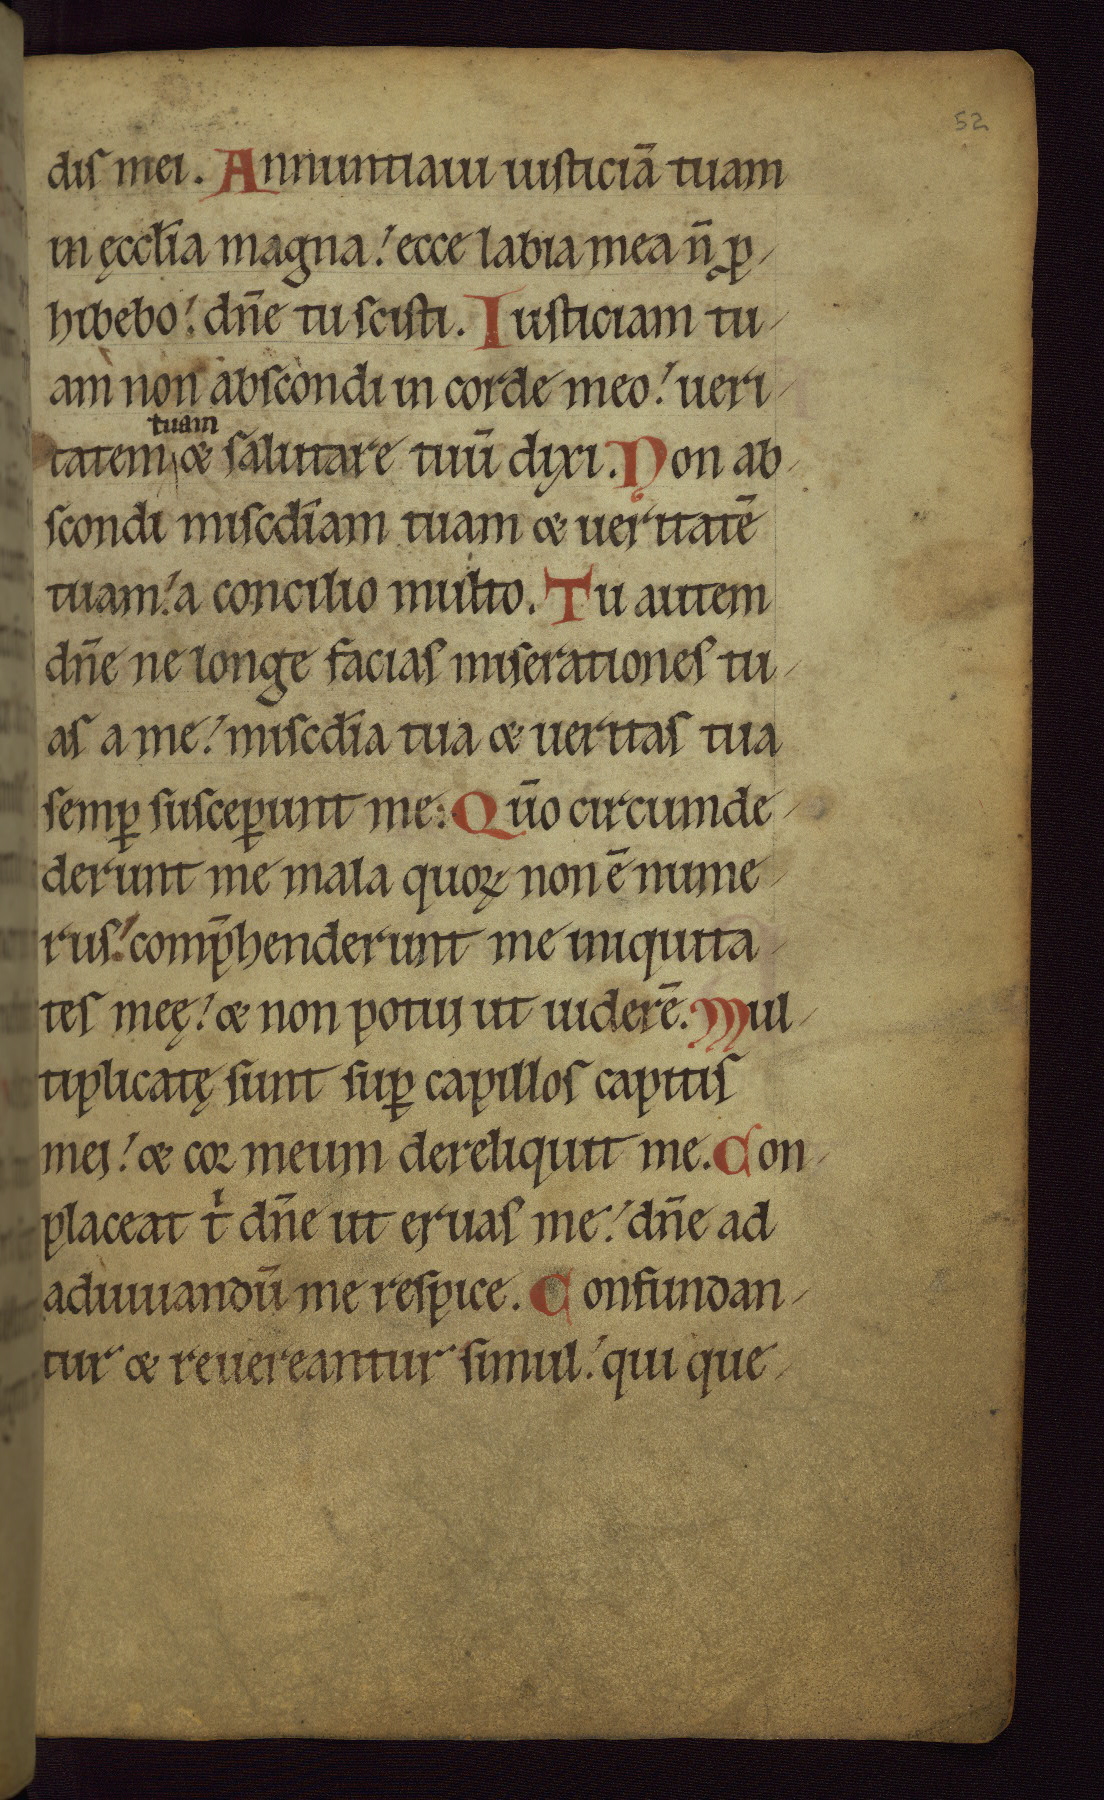 52
dis mei. Annuntiaui iusticiā tuam
in ęccłia magna! ecce labia mea n̄ ꝓ-
hibebo! dn̄e tu scisti. Iusticiam tu-
am non abscondi in corde meo! ueri-
tuam
tatem & salutare tuū dixi. Non ab-
scondi misc̄diam tuam & ueritatē
tuam! a concilio multo. Tu autem
dn̄e ne longe facias miserationes tu-
as a me! misc̄dia tua & ueritas tua
semꝑ susceꝑunt me: Qūo circumde-
derunt me mala quoꝝ non ē nume-
rus! comp̄henderunt me iniquita-
tes meę! & non potui ut uiderē. Mul-
tiplicatę sunt suꝑ capillos capitis
mei! & cor meum dereliquit me. Con-
placeat t̄ dn̄e ut eruas me! dn̄e ad
adiuuandū me respice. Confundan-
tur & reuereantur simul! qui que-